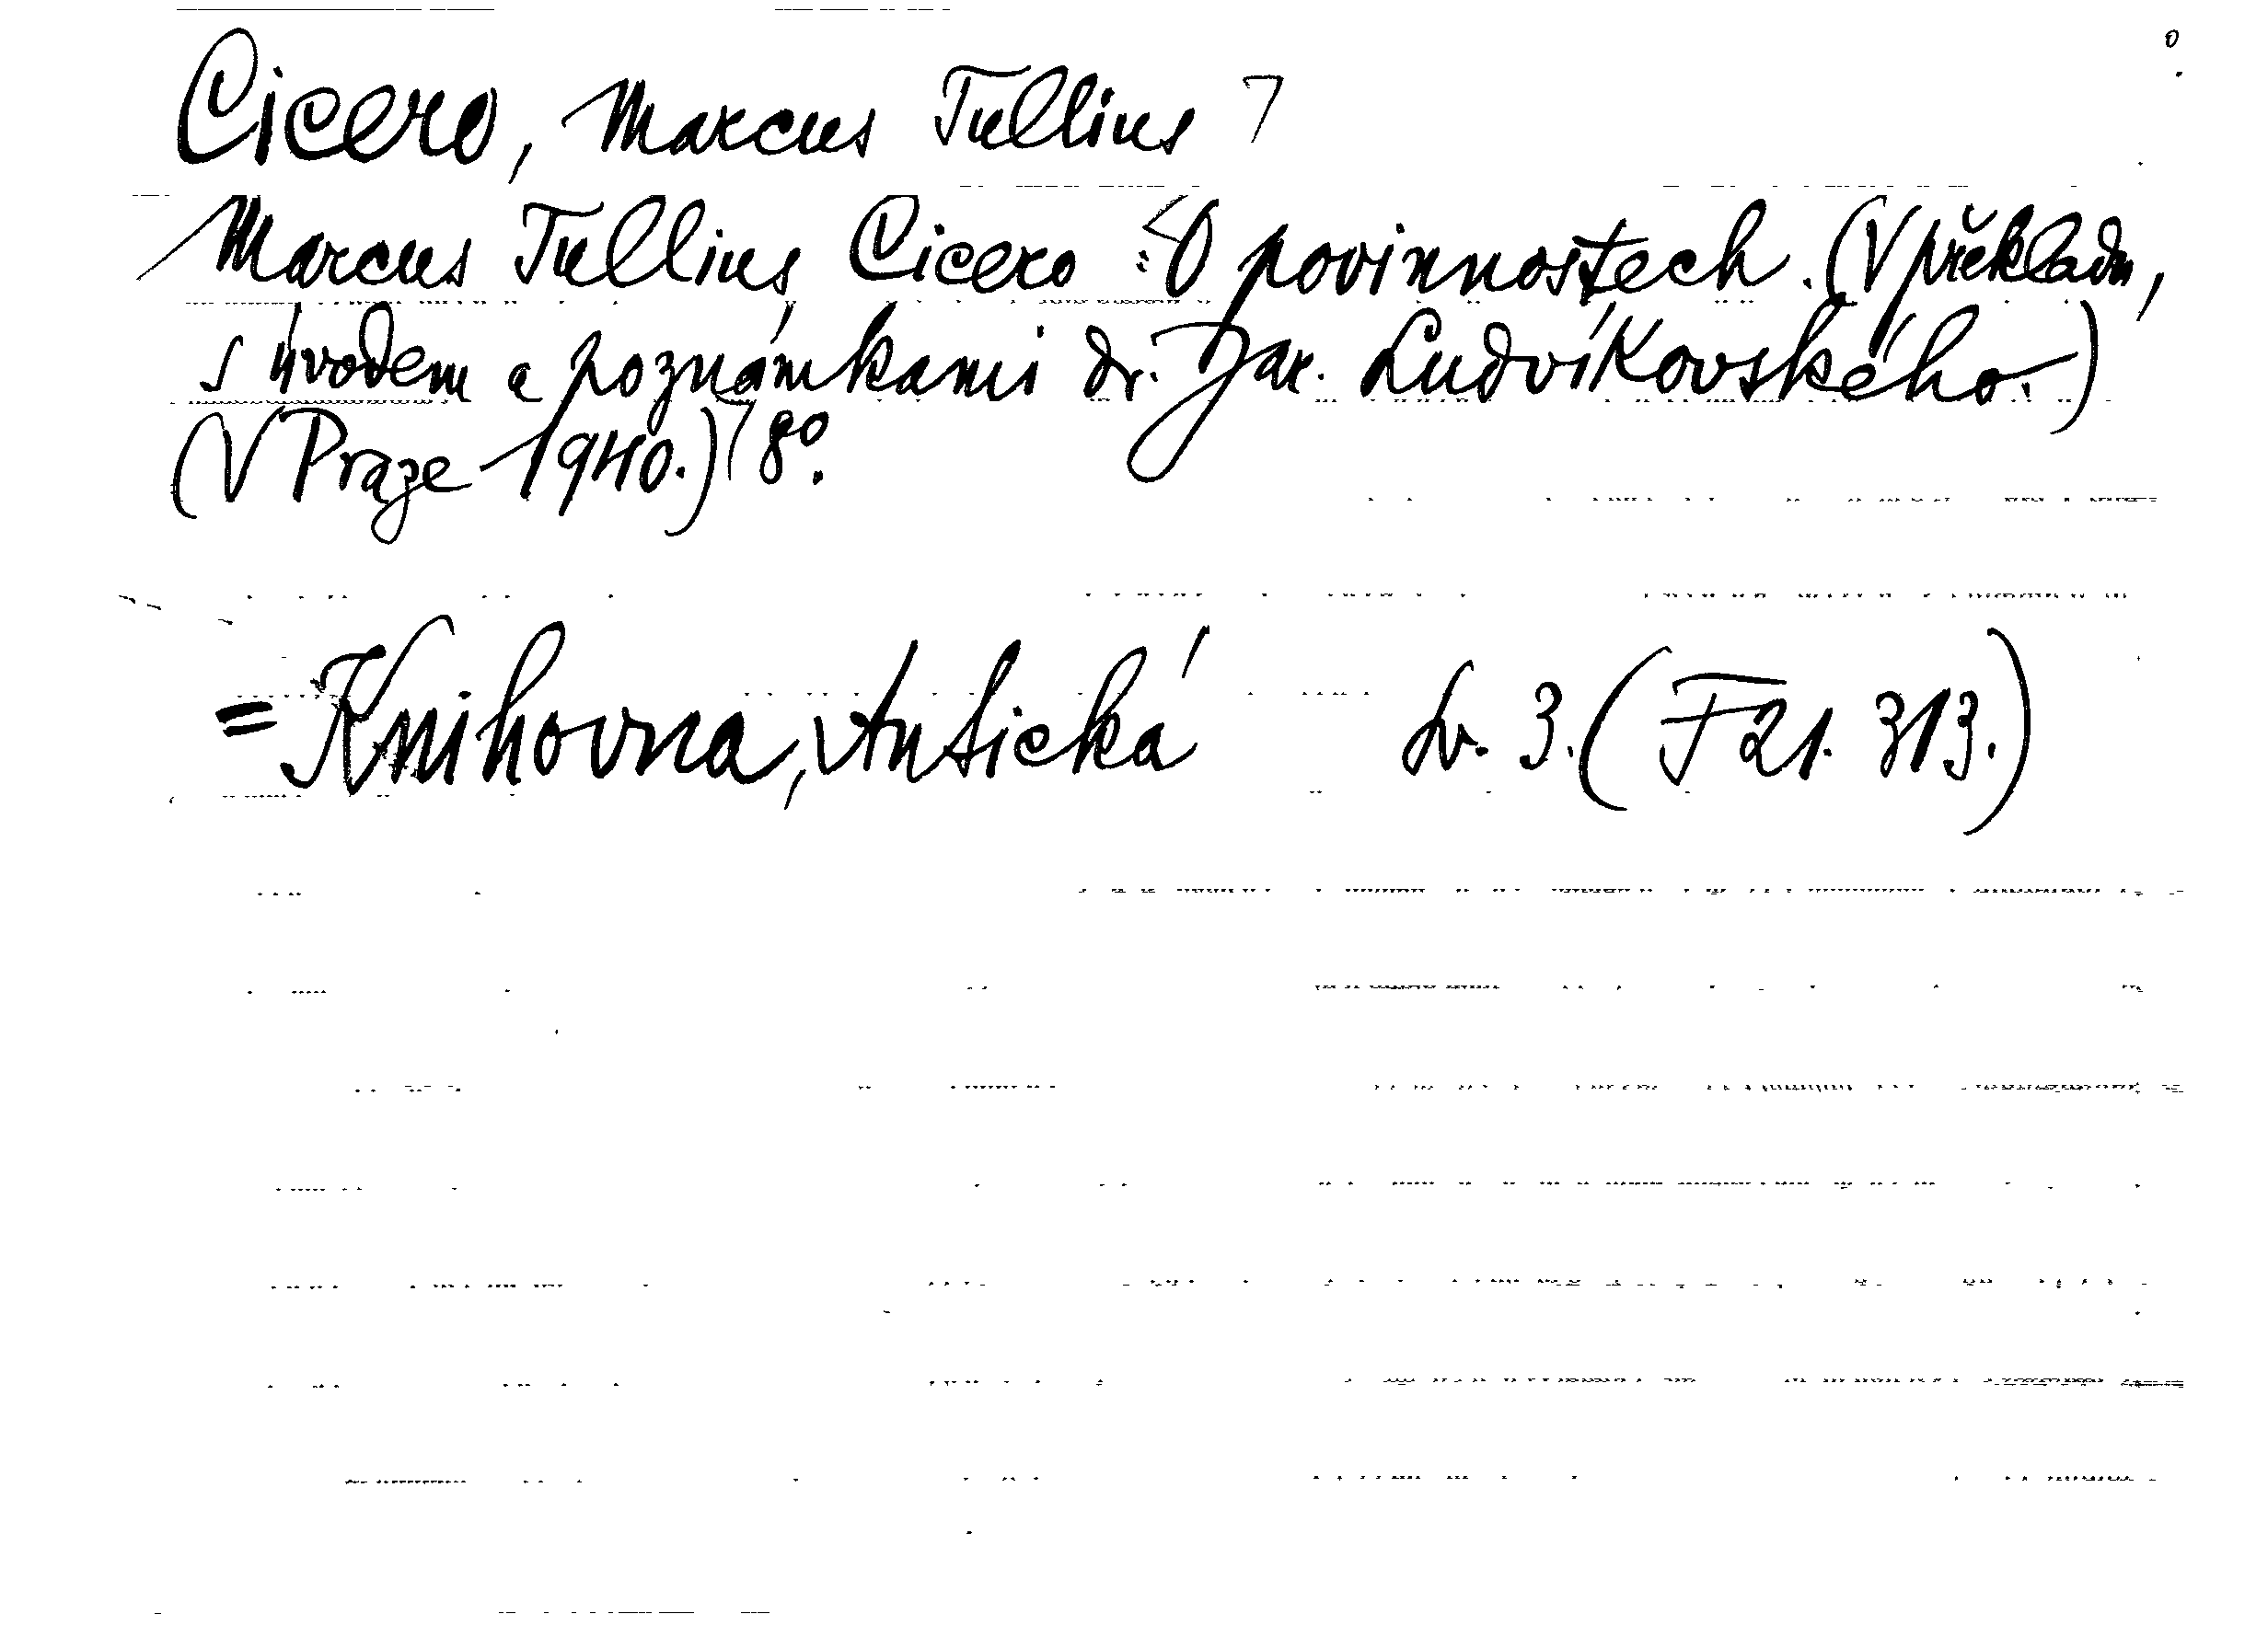 Cicero, Marcus Tullius
Marcus Tullius Cicero: O povinnostech. (V překladu,
s úvodem a poznámkami dr. Jar. Ludvíkovského.)
(V Praze 1940.) 8°.
= Knihovna, Antická sv. 3. (F 21. 313.)